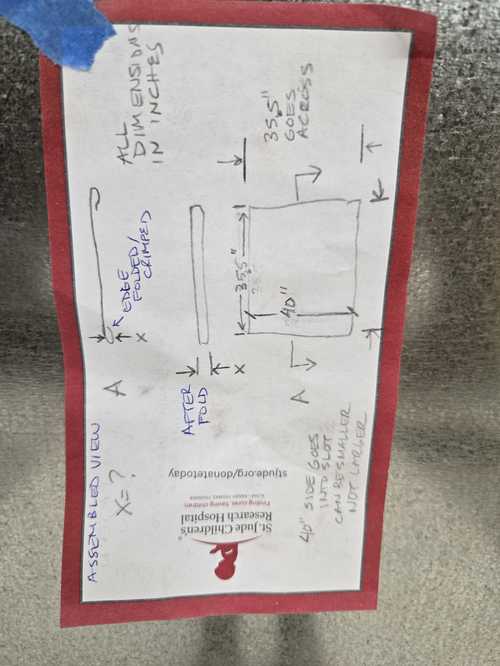 ASSEMBLED VIEW
X=?
A
EDGE
FOLDED/
CRIMPED
X
ALL
DIMENSIONS
IN INCHES
AFTER
FOLD
X
St. Jude Children's
Research Hospital
Finding cures. Saving children.
stjude.org/donatetoday
A
35.5"
40"
35.5"
GOES
ACROSS
40" SIDE GOES
INTO SLOT
CAN BE SMALLER
NOT LARGER